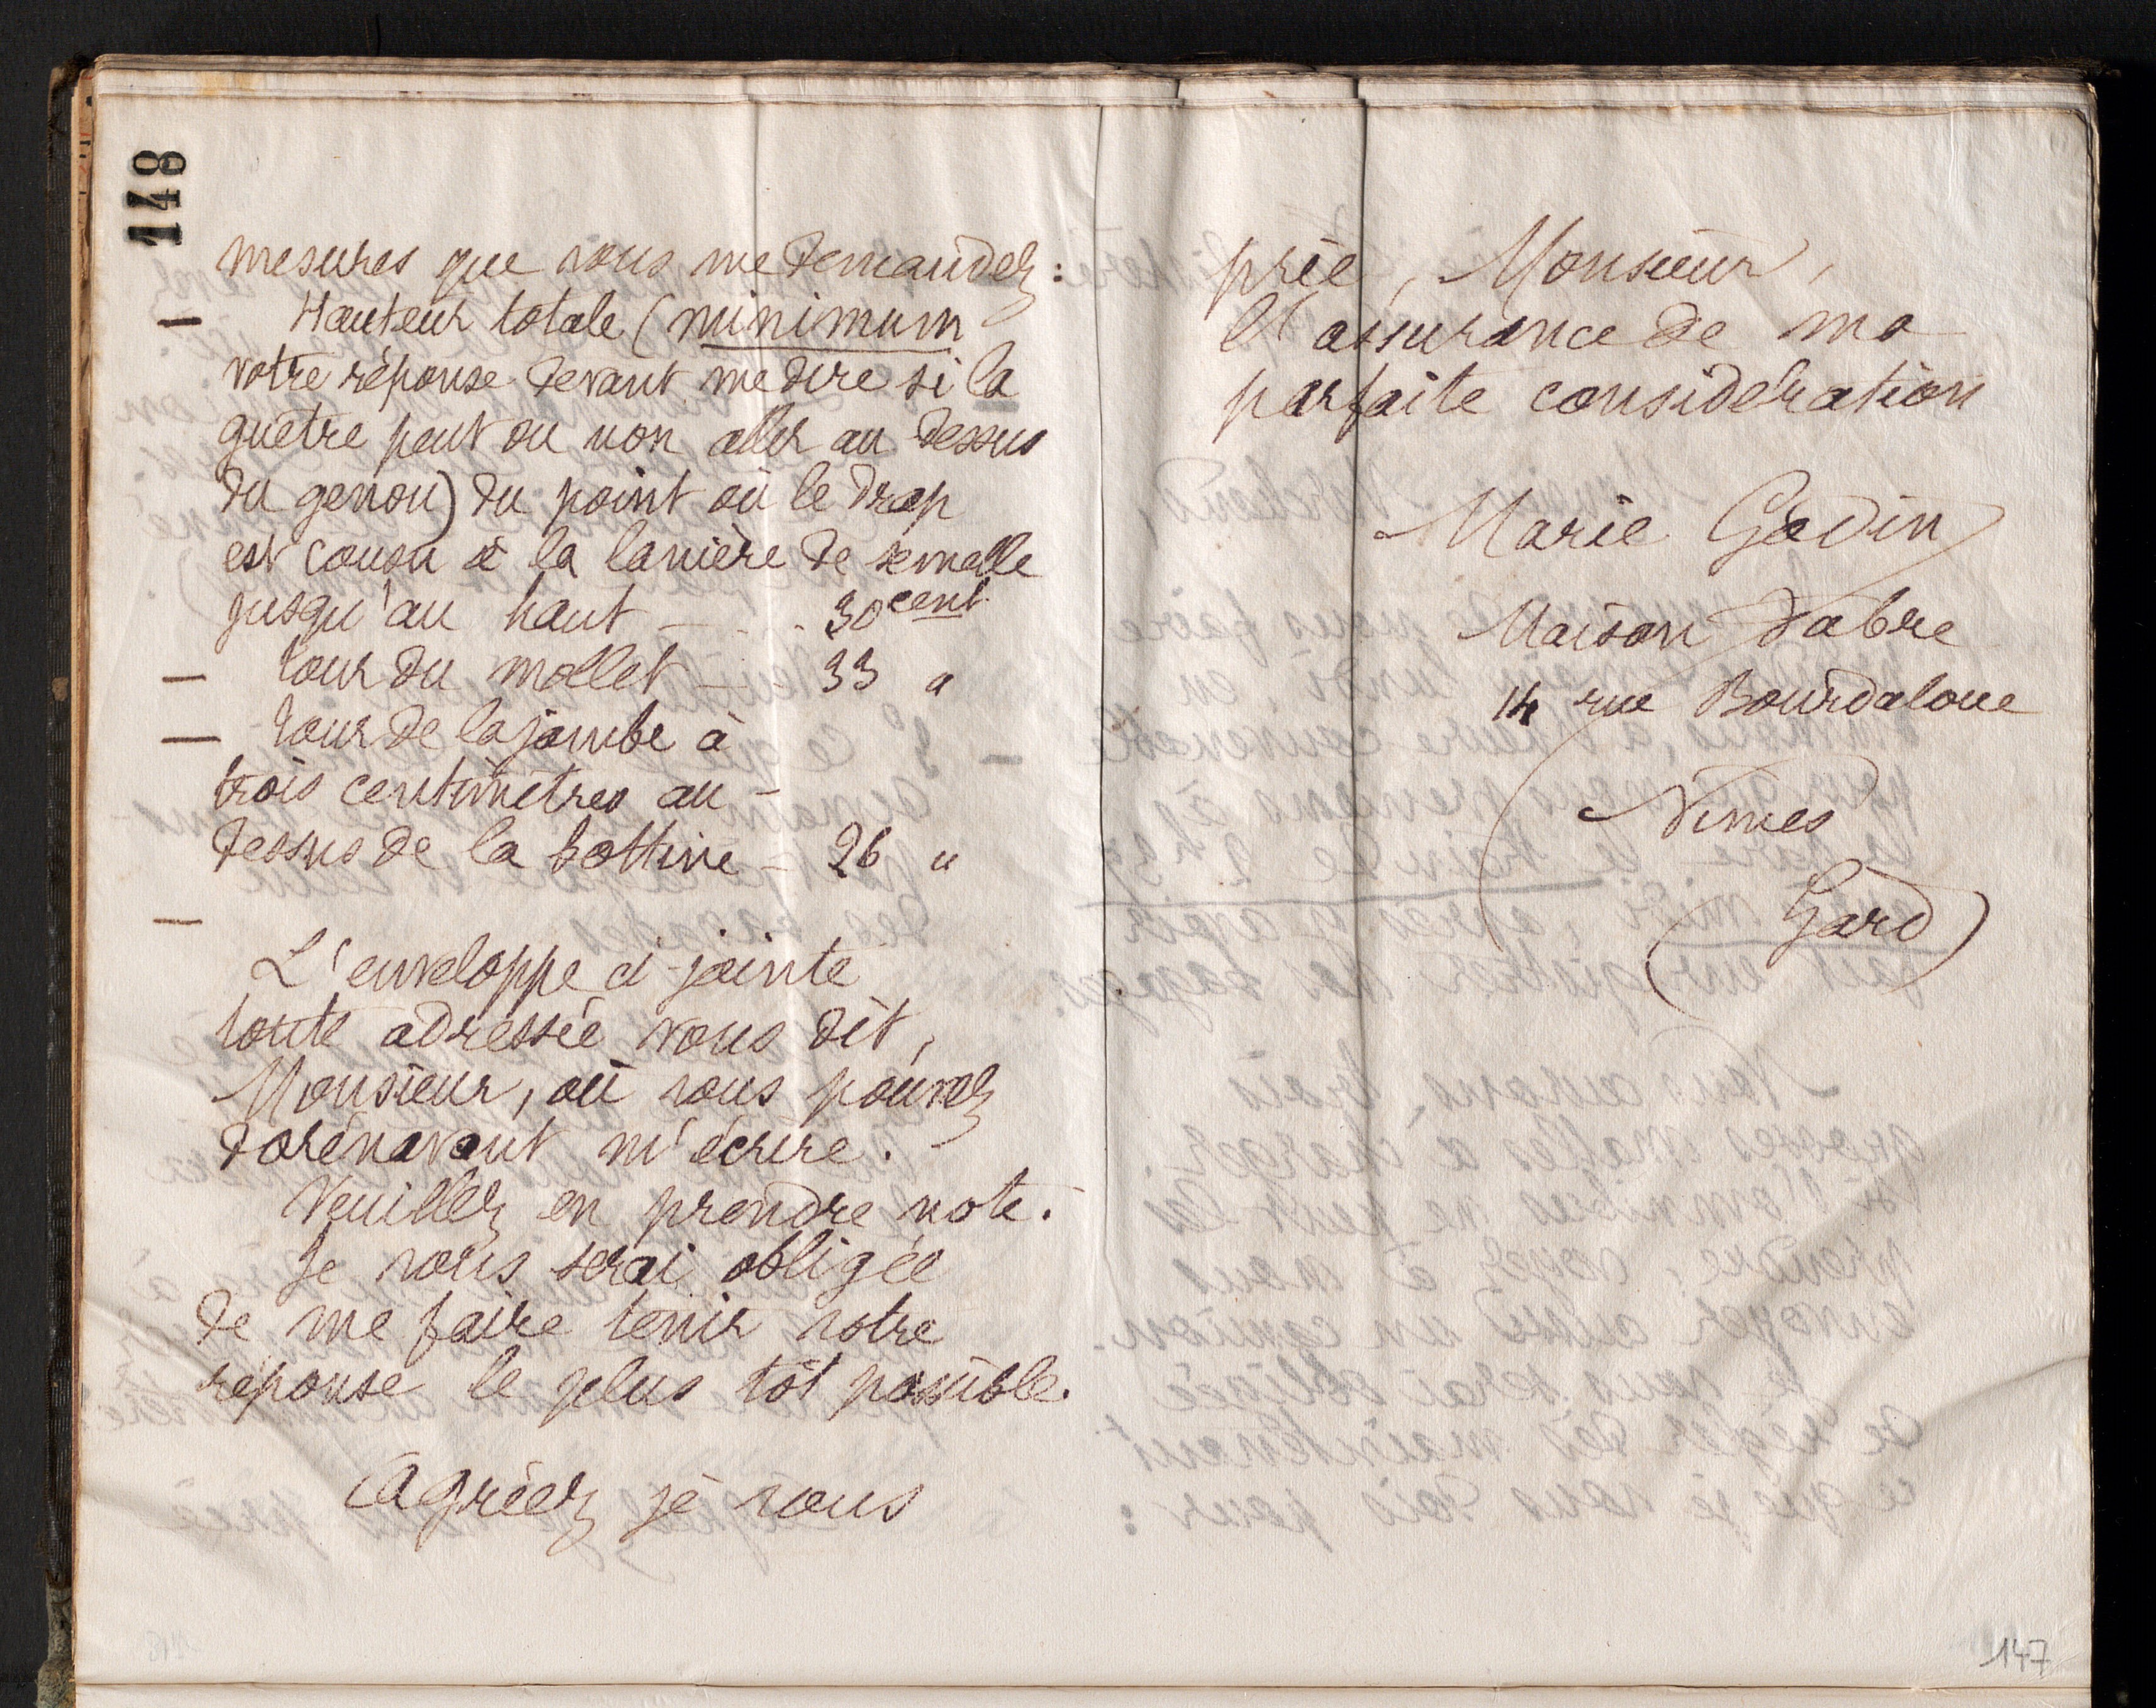 148
mesures que vous me demandez :
— Hauteur totale (minimum
votre réponse devant me dire si la
guêtre peut ou non aller au dessus
du genou) du point où le drap
est cousu à la lanière de semelle
jusqu'au haut — . . . 30 cent
— tour du mollet — . - 33 "
— tour de la jambe à
trois centimètres au -
dessus de la bottine - 26 "
—
L'enveloppe ci-jointe
toute adressée vous dit,
Monsieur, où vous pouvez
dorénavant m'écrire.
Veuillez en prendre note.
Je vous serai obligée
de me faire tenir votre
réponse le plus tôt possible.
Agréez je vous
prie, Monsieur,
l'assurance de ma
parfaite considération
Marie Godin
Maison Fabre
14 rue Bourdaloue
Nîmes
(Gard)
147